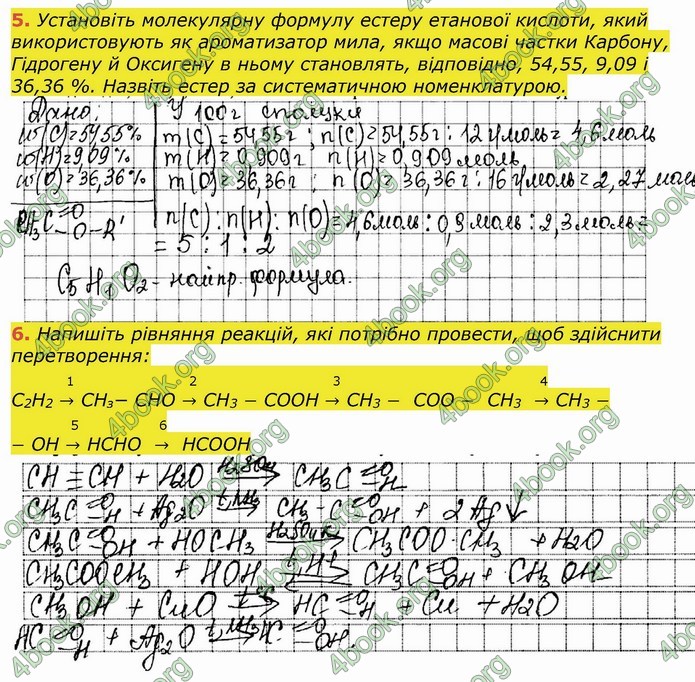 5. Установіть молекулярну формулу естеру етанової кислоти, який
використовують як ароматизатор мила, якщо масові частки Карбону,
Гідрогену й Оксигену в ньому становлять, відповідно, 54,55, 9,09 і
36,36 %. Назвіть естер за систематичною номенклатурою.
Дано: У 100г сполуки
w(C)=54,55% m(C)=54,55г; n(C)=54,55г:12г/моль=4,6моль
w(H)=9,09% m(H)=0,909г n(H)=0,909моль
w(O)=36,36% m(O)=36,36г; n(O)=36,36г:16г/моль=2,27моль
CH₃C=O –O–R' n(C):n(H):n(O)=4,6моль:0,9моль:2,3моль=
= 5:1:2
C₅H₁O₂ - найпр. формула.
6. Напишіть рівняння реакцій, які потрібно провести, щоб здійснити
перетворення:
1 2 3 4
C₂H₂ → CH₃− CHO → CH₃ − COOH → CH₃ − COO − CH₃ → CH₃ −
5 6
− OH → HCHO → HCOOH
CH≡CH + H₂O H₂SO₄→ CH₃C=O H
CH₃C=O H + Ag₂O t,NH₃→ CH₃-C=O OH + 2Ag↓
CH₃C=O OH + HOCH₃ H₂SO₄к→ CH₃COO·CH₃ + H₂O
CH₃COOCH₃ + HOH t,H⁺⇄ CH₃C=O OH + CH₃OH
CH₃OH + CuO t°C→ HC=O H + Cu + H₂O
HC=O H + Ag₂O t,NH₃→ HC=O OH.
4book.org